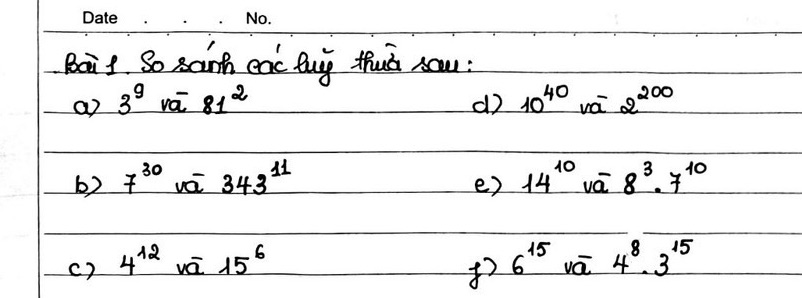 Date . . . No.
Bài 1. So sánh các luỹ thừa sau:
a) 3⁹ và 81² d) 10⁴⁰ và 2²⁰⁰
b) 7³⁰ và 343¹¹ e) 14¹⁰ và 8³.7¹⁰
c) 4¹² và 15⁶ f) 6¹⁵ và 4⁸.3¹⁵